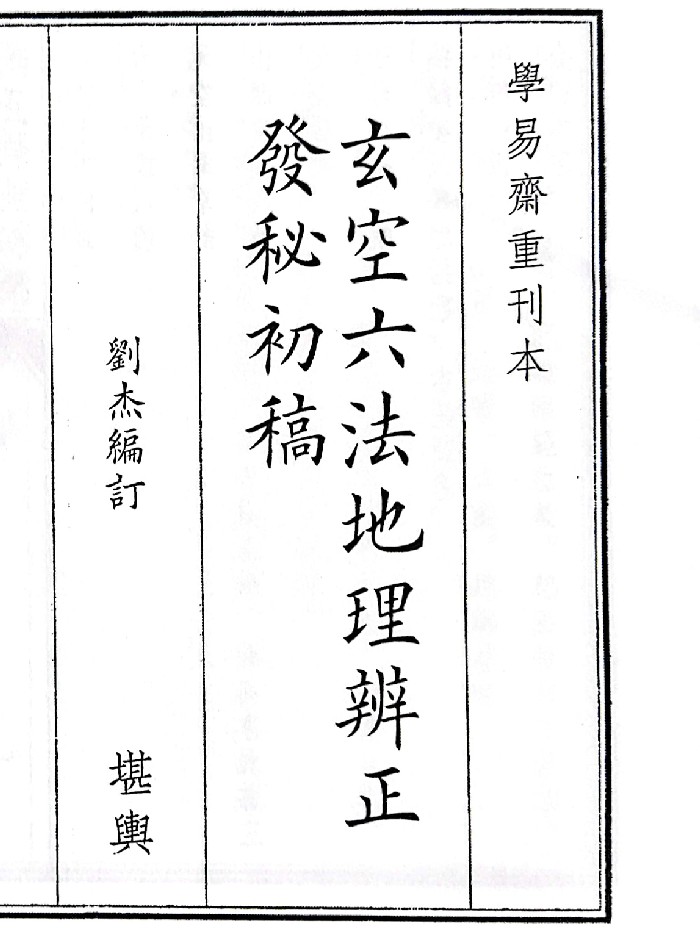 學易齋重刊本
玄空六法地理辨正
發秘初稿
劉杰編訂
堪輿